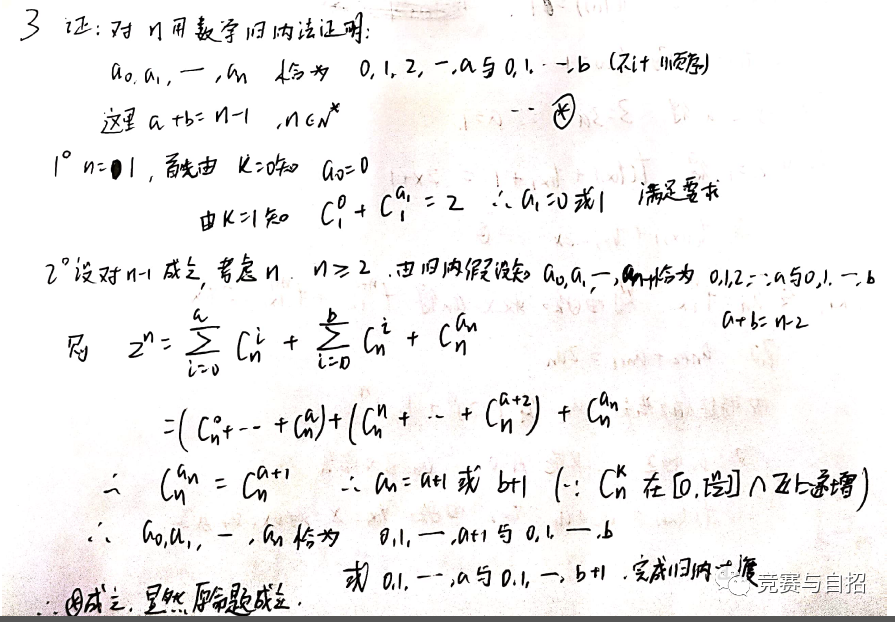 3 证：对 n 用数学归纳法证明：
a₀, a₁, …, aₙ 恰为 0, 1, 2, …, a 与 0, 1, …, b (不计顺序)
这里 a+b=n-1 , n∈N* … ⊛
1° n=1, 首先由 K=0知 a₀=0
由K=1知 C₁⁰ + C₁^{a₁} = 2 ∴ a₁=0或1 满足要求
2° 设对n-1成立, 考虑n. n≥2 .由归纳假设知 a₀, a₁, …, aₙ₋₁恰为 0,1,2…,a与0,1,…,b
a+b=n-2
则 2ⁿ = ∑_{i=0}^{a} Cₙ^i + ∑_{i=0}^{b} Cₙ^i + Cₙ^{aₙ}
=(Cₙ⁰+…+Cₙ^a)+(Cₙⁿ+…+Cₙ^{a+2}) + Cₙ^{aₙ}
∴ Cₙ^{aₙ} = Cₙ^{a+1} ∴ aₙ=a+1 或 b+1 (∵ Cₙ^K 在[0,[n/2]]∩Z上递增)
∴ a₀,a₁, …, aₙ恰为 0,1,…,a+1 与 0,1,…,b
或 0,1,…,a与0,1,…,b+1 .完成归纳过渡
∴⊛成立. 显然原命题成立.
竞赛与自招